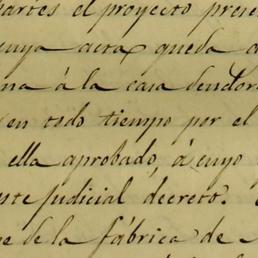 partes el proyecto prese
cuya acta queda a
na á la casa deudora
en todo tiempo por el
ella aprobado, á cuyo
ste judicial decreto.
e de la fábrica de